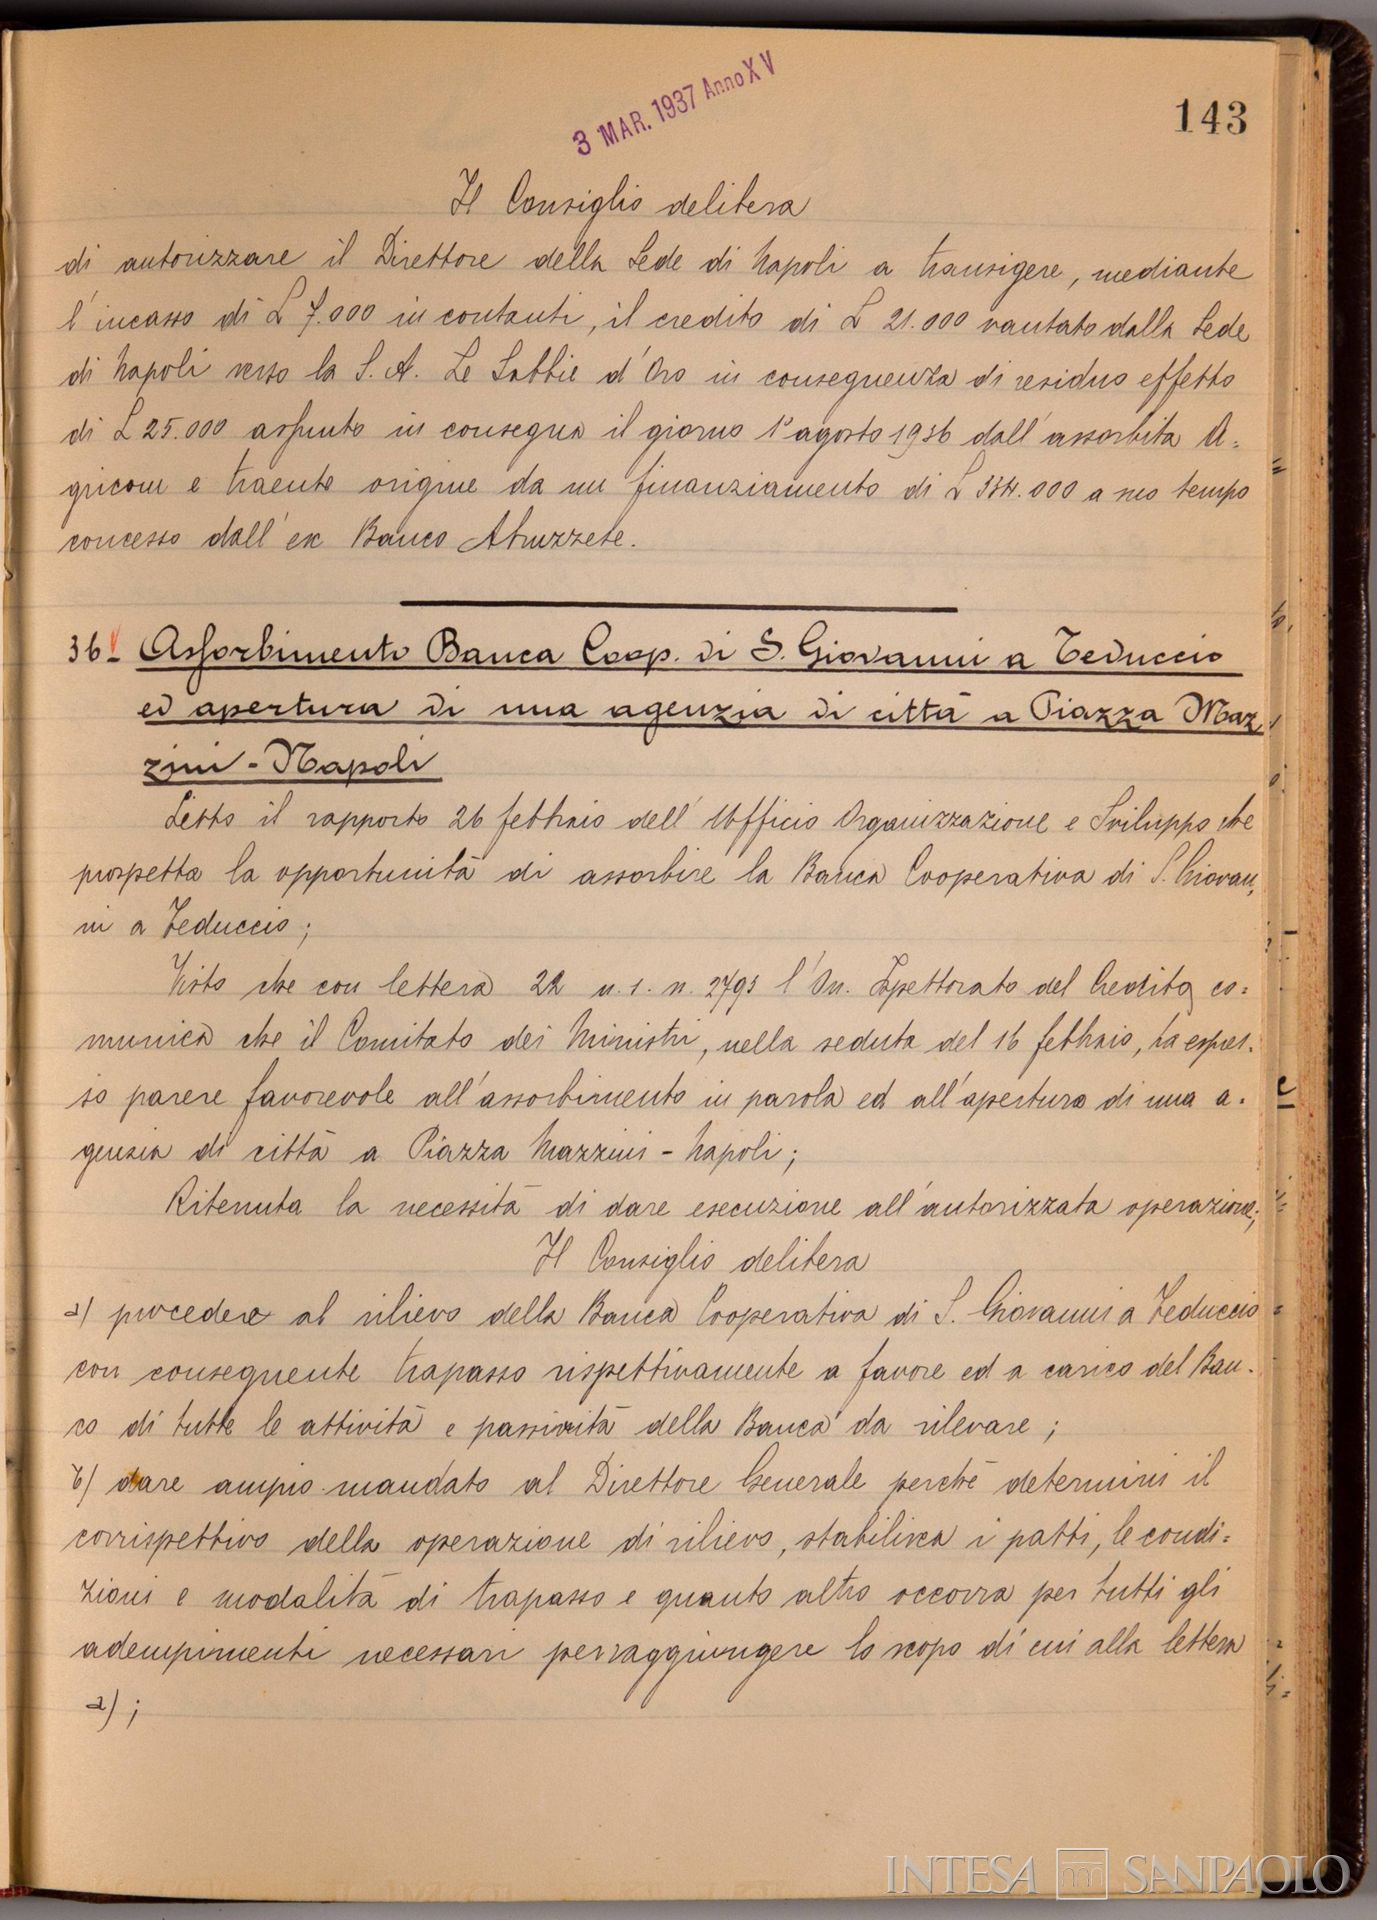 3 MAR. 1937 Anno XV
143
Il Consiglio delibera
di autorizzare il Direttore della Sede di Napoli a transigere, mediante
l'incasso di £ 7.000 in contanti, il credito di £ 21.000 vantato dalla Sede
di Napoli verso la S. A. Le Sabbie d'Oro in conseguenza di residuo effetto
di £ 25.000 assunto in consegna il giorno 1° agosto 1936 dall'assorbita A=
gricom e traente origine da un finanziamento di £ .000 a suo tempo
concesso dall'ex Banco Abruzzese.
36. Assorbimento Banca Coop. di S. Giovanni a Teduccio
ed apertura di una agenzia di città a Piazza Maz
zini - Napoli
Letto il rapporto 26 febbraio dell'Ufficio Organizzazione e Sviluppo che
prospetta la opportunità di assorbire la Banca Cooperativa di S. Giovan,
ni a Teduccio;
Visto che con lettera 22 u. s. n. 2793 l'On. Ispettorato del Credito co=
munica che il Comitato dei Ministri, nella seduta del 16 febbraio, ha espres.
so parere favorevole all'assorbimento in parola ed all'apertura di una a.
genzia di città a Piazza Mazzini - Napoli;
Ritenuta la necessità di dare esecuzione all'autorizzata operazione;
Il Consiglio delibera
a) procedere al rilievo della Banca Cooperativa di S. Giovanni a Teduccio
con conseguente trapasso rispettivamente a favore ed a carico del Ban.
co di tutte le attività e passività della Banca da rilevare;
b) dare ampio mandato al Direttore Generale perchè determini il
corrispettivo della operazione di rilievo, stabilisca i patti, le condi=
zioni e modalità di trapasso e quanto altro occorra per tutti gli
adempimenti necessari per raggiungere lo scopo di cui alla lettera
a);
INTESA SANPAOLO